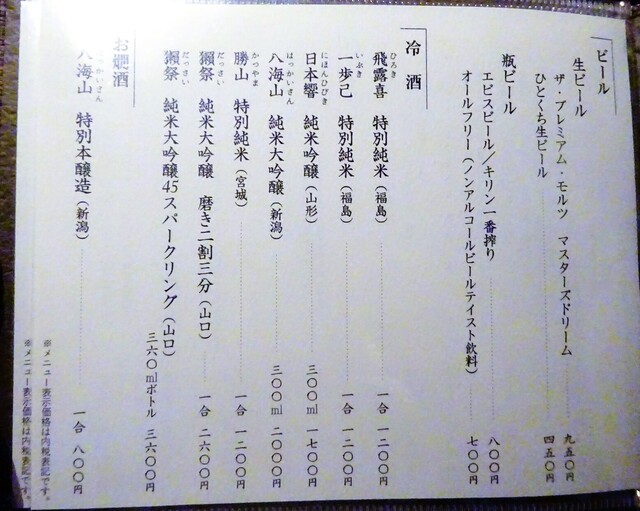 ビール
生ビール
ザ・プレミアム・モルツ マスターズドリーム 九五〇円
ひとくち生ビール 四五〇円
瓶ビール
ヱビスビール／キリン一番搾り 八〇〇円
オールフリー（ノンアルコールビールテイスト飲料） 七〇〇円
冷酒
飛露喜 ひろき 特別純米（福島） 一合 一二〇〇円
一歩己 いぶき 特別純米（福島） 一合 一二〇〇円
日本響 にほんひびき 純米吟醸（山形） 三〇〇ml 一七〇〇円
八海山 はっかいさん 純米大吟醸（新潟） 三〇〇ml 二〇〇〇円
勝山 かつやま 特別純米（宮城） 一合 一二〇〇円
獺祭 だっさい 純米大吟醸 磨き二割三分（山口） 一合 二六〇〇円
獺祭 だっさい 純米大吟醸45スパークリング（山口） 三六〇mlボトル 三六〇〇円
お燗酒
八海山 っかいさん 特別本醸造（新潟） 一合 八〇〇円
※メニュー表示価格は内税表記です。
※メニュー表示価格は内税表記です。